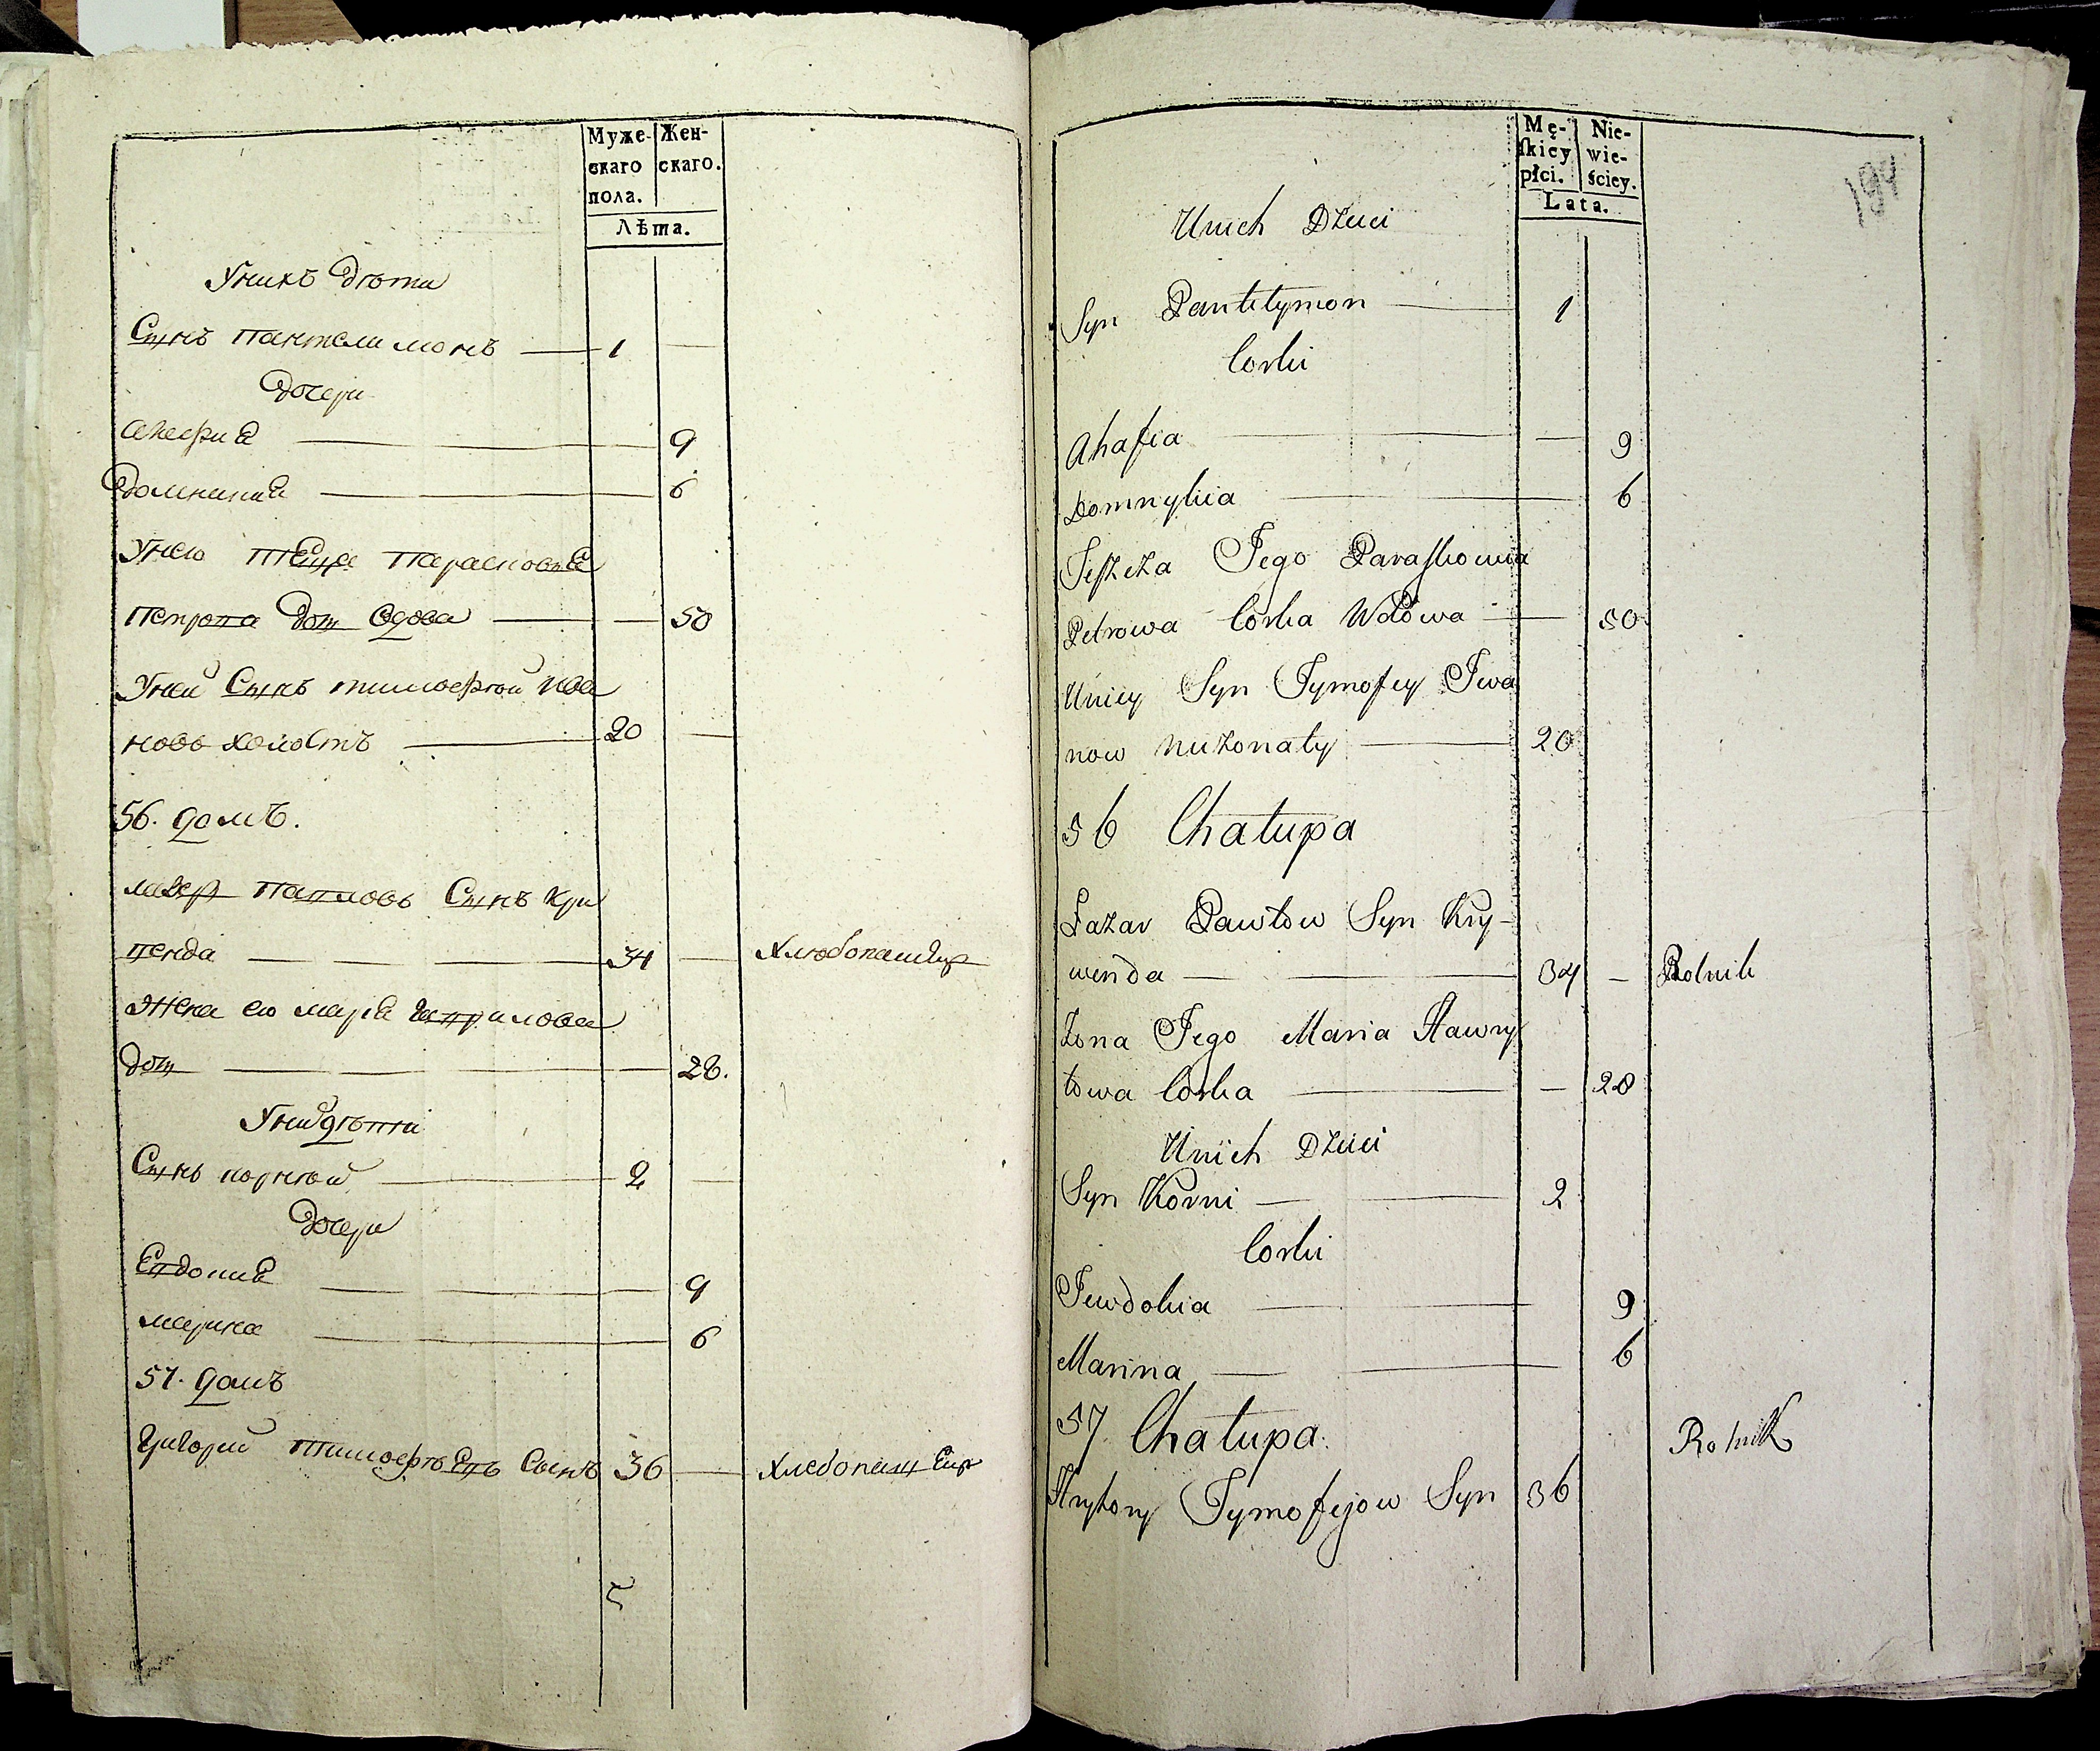 Муже-
скаго
пола.
Жен-
скаго.
Лѣта.
Унихъ дѣти
Сынъ пантелимонъ — 1 —
дочери
Агафия — 9
Домникия — 6
Унего теща Парасковея
Петрова доч вдова — — 50
Уней Сынъ тимофѣй Ива
новъ холостъ — 20 —
56. домъ.
лазар павловъ Сынъ Кри
венда — — — 34 — Хлѣбопашецъ
Жена его мария гаврилова
доч — — — 28.
Униx дѣти
Сынъ корнѣй — 2 —
дочери
Евдокия — 9
марина — 6
57. домъ
Григорий тимофѣевъ Сынъ 36 — Хлебопашецъ
Mę-
ſkiey
płci.
Nie-
wie-
ściey.
Lata.
194
Unich Dzieci
Syn Pantelymon — 1
Corki
Ahafia — — 9
Domnykia — 6
Teszcza Jego Paraskowia
Petrowa Corka Wdowa — 50
Uniey Syn Tymofey Iwa
now nieżonaty — 20
56 Chałupa
Łazar Pawłow Syn Kry-
wenda — — 34 — Rolnik
Żona Jego Maria Hawry
łowa Corka — — 28
Unich Dzieci
Syn Korni — 2
Corki
Jewdokia — 9
Marina — — 6
57 Chałupa.
Rolnik
Hryhory Tymofejow Syn 36